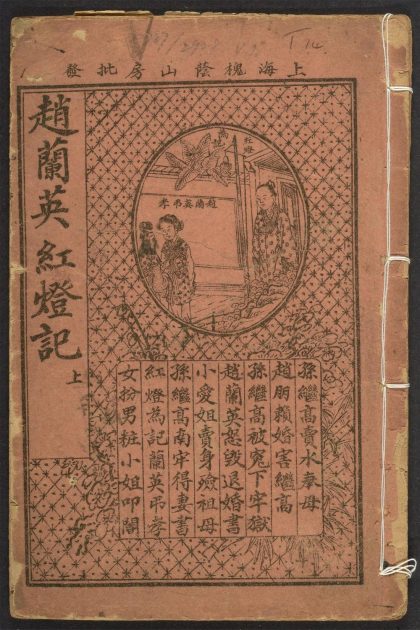 上海槐蔭山房批發
趙蘭英紅燈記
上
趙蘭英弔孝
孫繼高賣水奉母
趙朋賴婚害繼高
孫繼高被冤下牢獄
趙蘭英怒毀退婚書
小愛姐賣身殮祖母
孫繼高南牢得妻書
紅燈為記蘭英弔孝
女扮男粧小姐叩閽